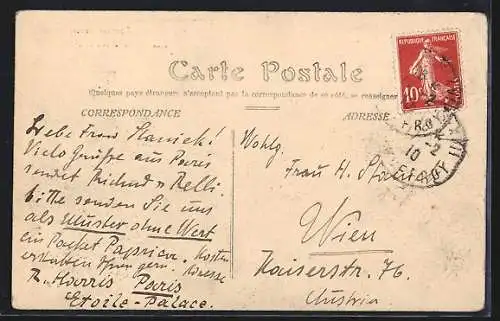 Carte Postale
Quelques pays étrangers n'acceptent pas la correspondance de ce côté, se renseigner
CORRESPONDANCE
ADRESSE
REPUBLIQUE FRANÇAISE
10
Liebe Frau Stanick!
Viele Grüße aus Paris
sendet Richard
bitte senden Sie uns
als Muster ohne Wert
ein Packet Paprica. Kosten
erstatten Ihnen gern. Adresse
R. Harris Paris
Etoile-Palace.
Wohlg.
Frau H.
Wien
Kaiserstr. 76.
Austria